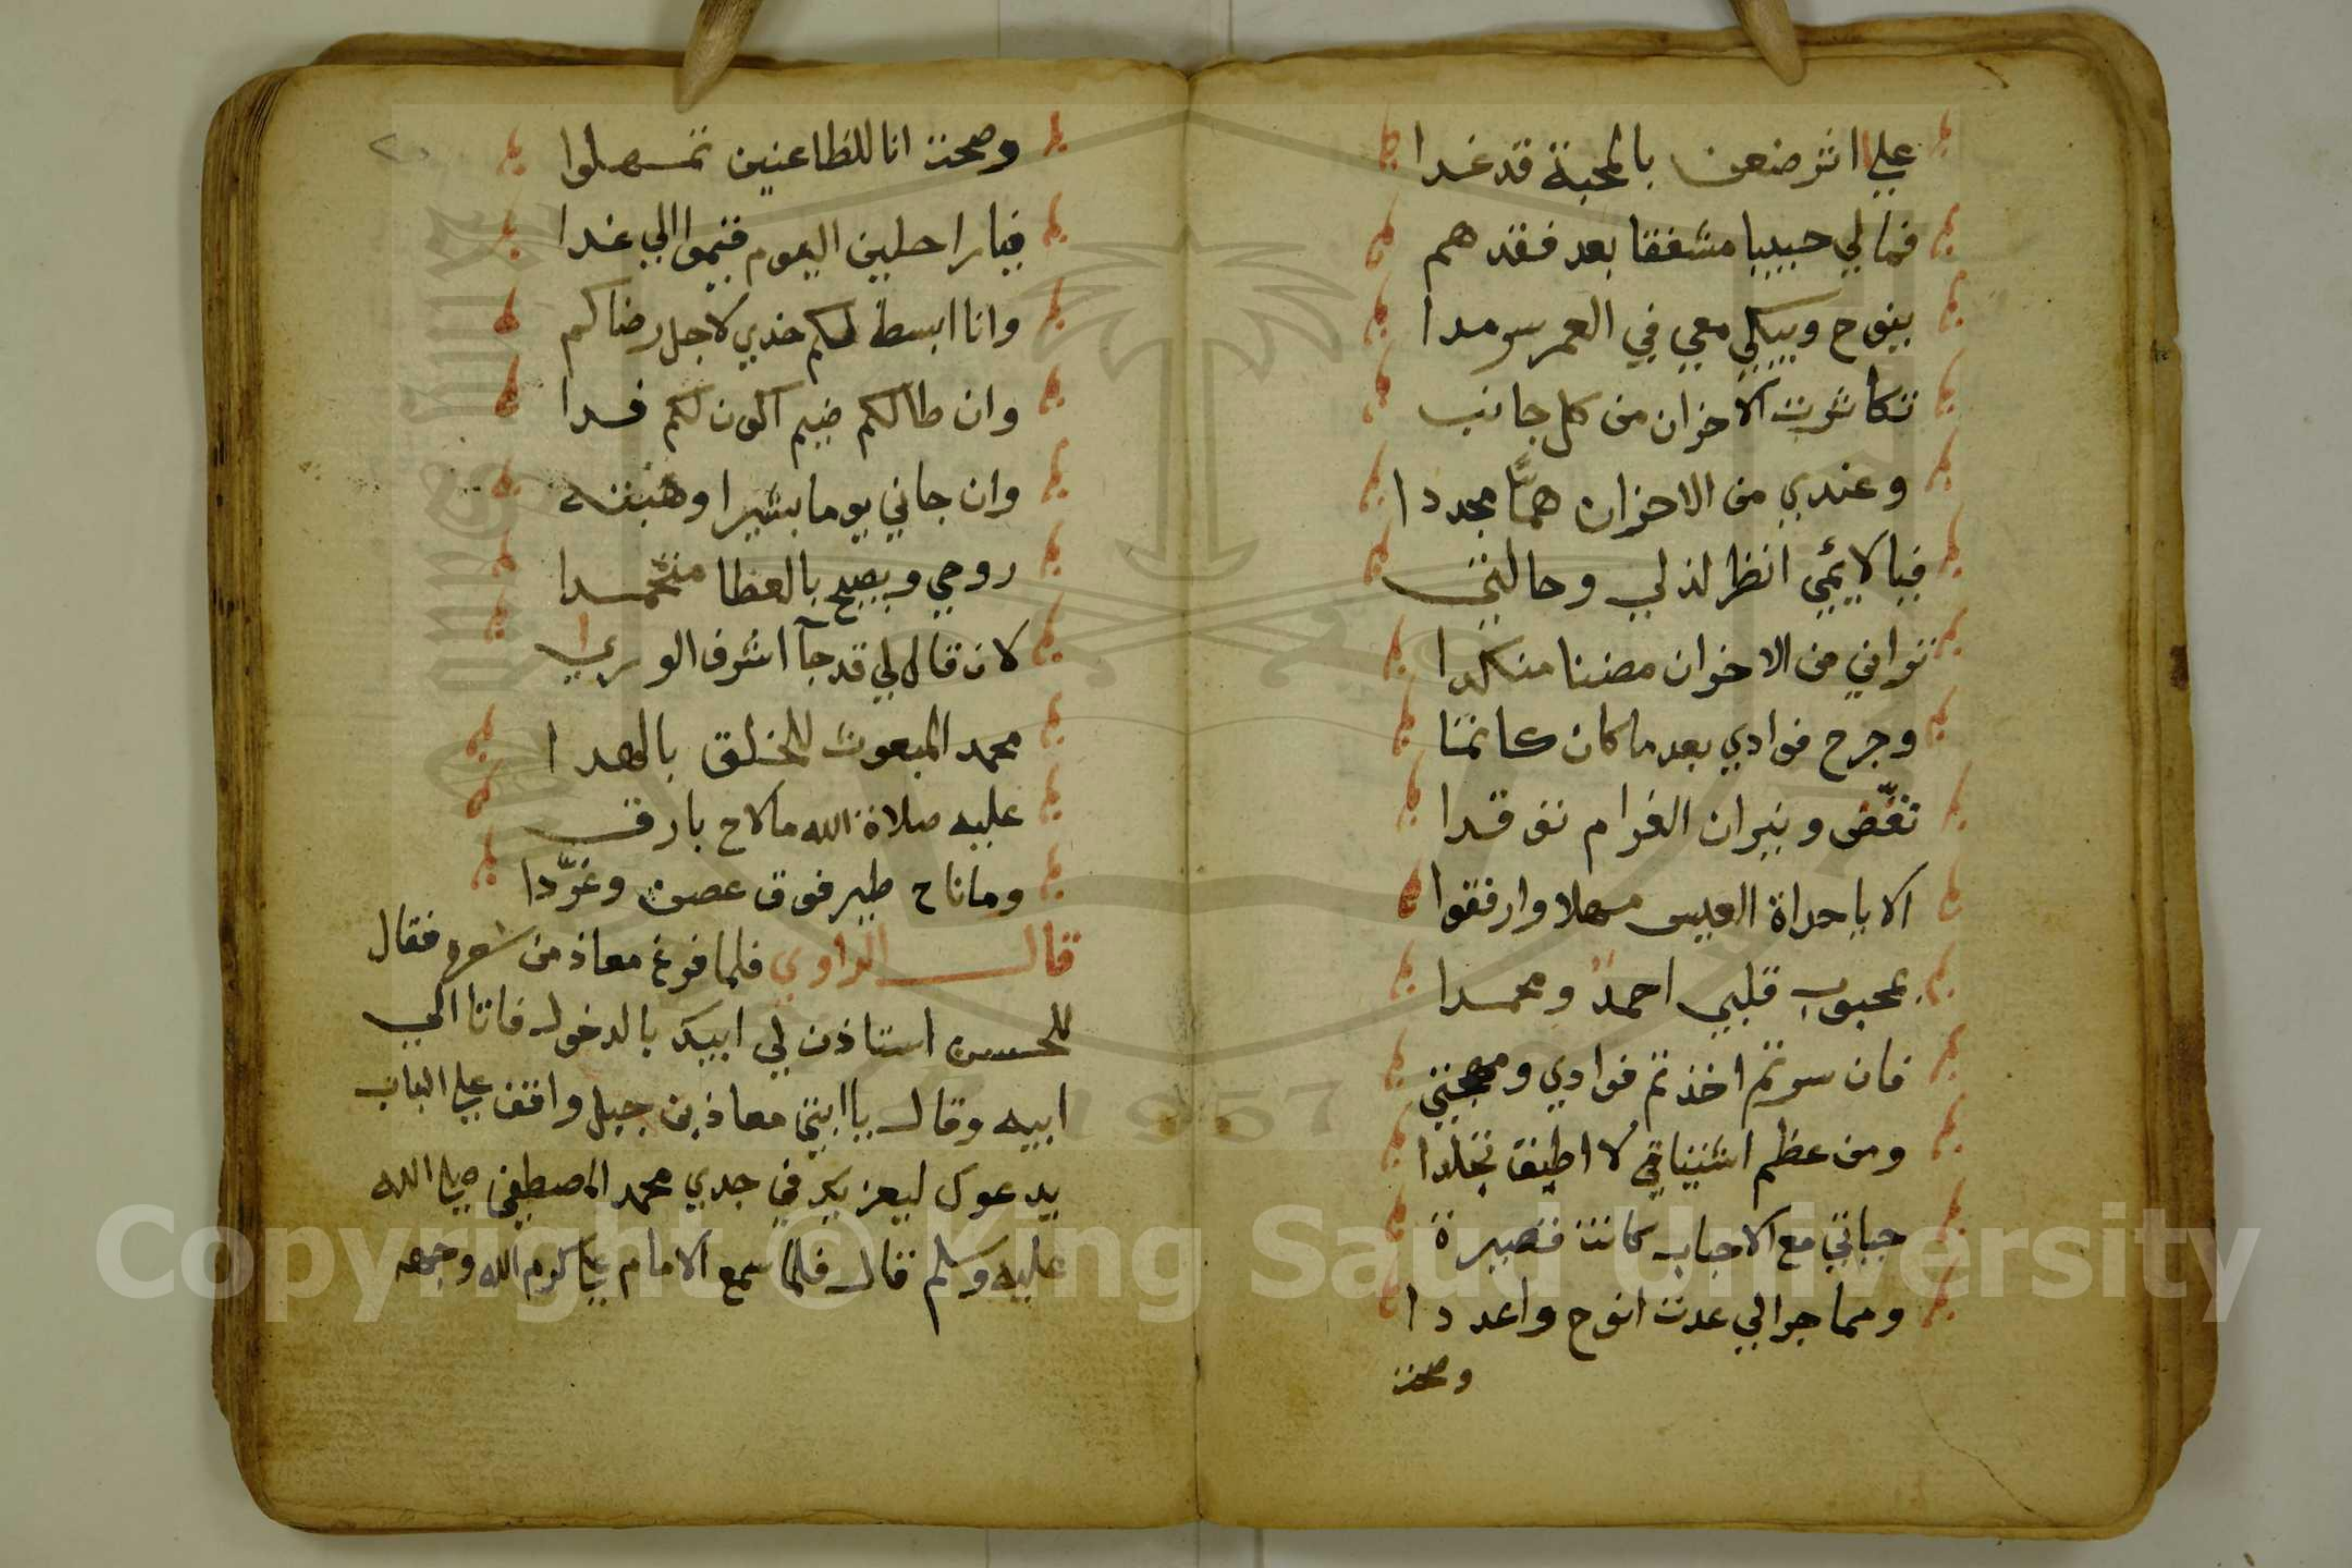 علي اثر ضعن بالمحبة قد غدا
فما لي حبيبا مشفقا بعد فقدهم
ينوح ويبكي معي في العمر سرمدا
تكاثرت الاخزان من كل جانب
وعندي من الاحزان همًّا مجددا
فيا لايمي انظر لذلي وحالتي
تراني من الاخوان مضنا منكدا
وجرح فوادي بعد ما كان كاتما
تفض ونيران الغرام توقدا
الا يا حداة العيس مهلا وارفقوا
بمحبوب قلبي احمدٌ ومحمدا
فان سرتم اخذتم فوادي ومهجتي
ومن عظم اشتياقي لا اطيق تجلدا
حياتي مع الاحباب كانت قصيرة
ومما جرالي عدت انوح واعددا
وصحت
٢٠
وصحت انا للظاعنين تمهلوا
فيا راحلين اليوم قيموا الي غدا
وانا ابسط لكم خدي لاجل رضاكم
وان طالكم ضيم اكون لكم فدا
وان جاني يوما بشيرا وهبته
روحي ويصيح بالعطا
لان قال لي قد جآ اشرف الوري
محمد المبعوث للخلق بالهدا
عليه صلاة الله ما لاح بارق
وما ناح طير فوق عصن وغرّدا
قال الراوي فلما فرغ معاذ من شعره فقال
للحسن استاذن لي ابيك بالدخول فاتا الي
ابيه وقال يا ابتي معاذ بن جبل واقف علي الباب
يدعوك ليعزيك في جدي محمد المصطفي صلي الله
عليه وسلم قال فلما سمع الامام علي كرم الله وجهه
Copyright © King Saud University
1957